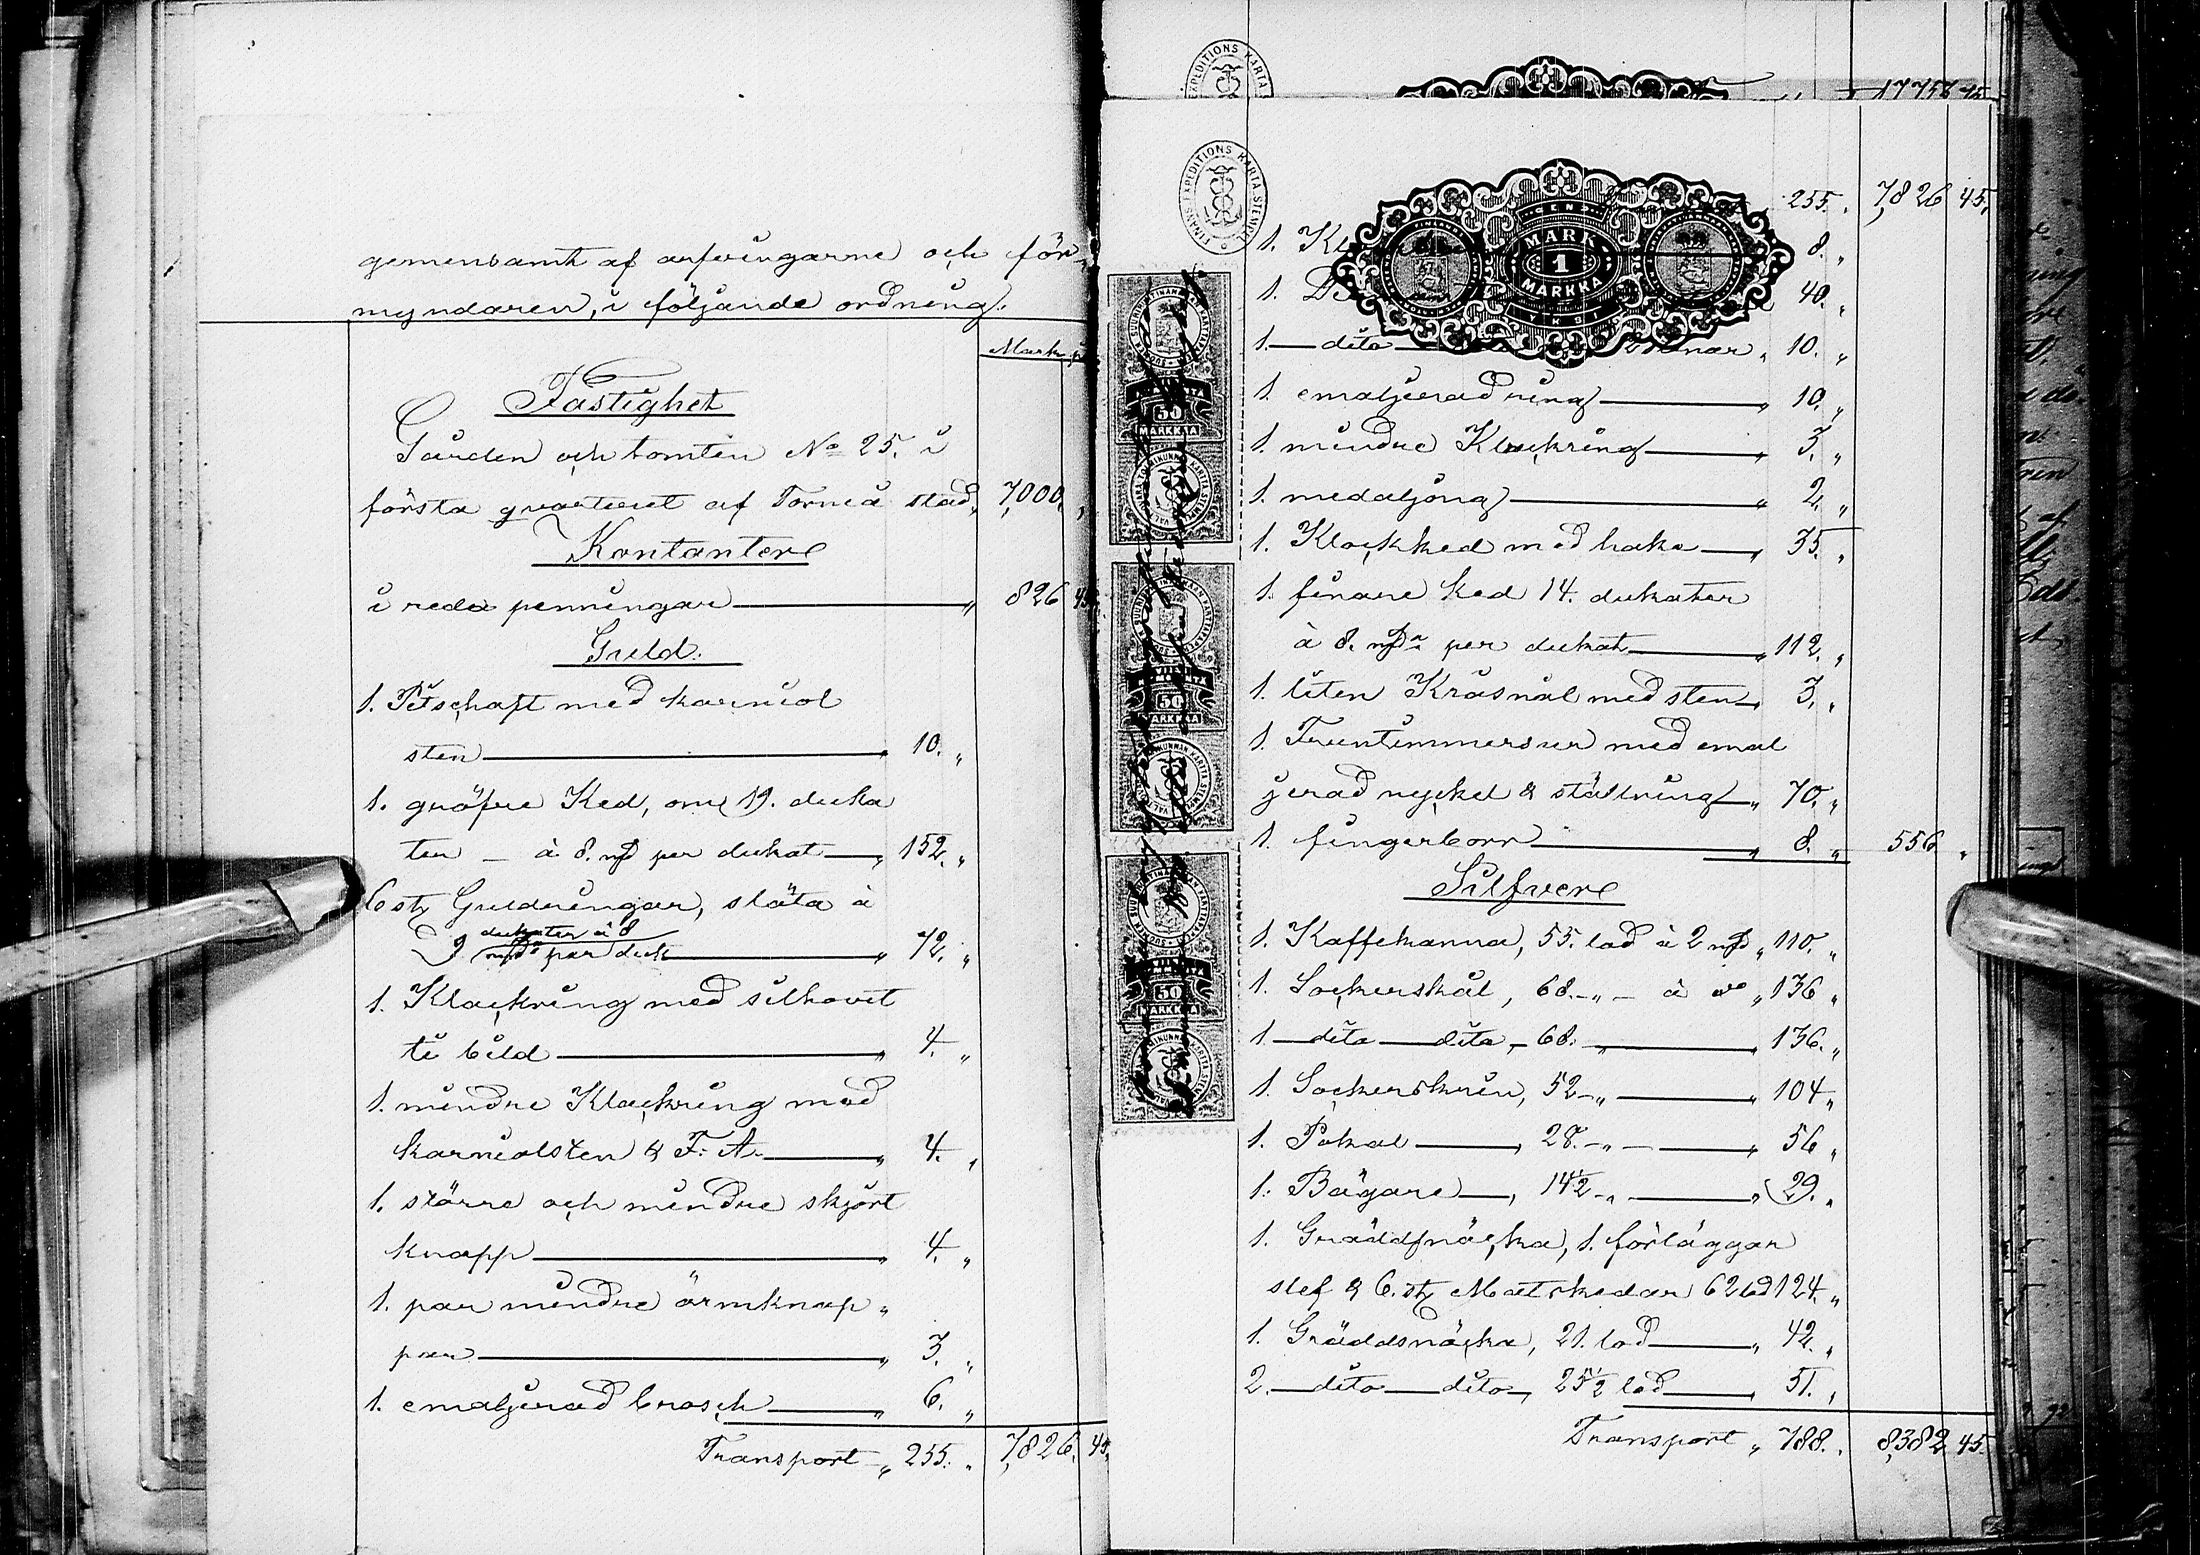 gemensamt af arfvingarne och för-
myndaren, i följande ordning:
Mark p
Fastighet
Gården och tomten No 25. i
första qvarteret af Torneå stad „ 7,000. „
Kontanter
i reda penningar „ 826 45.
Guld.
1. Pitschaft med karniol
sten „ 10. „
1. gröfre Ked, om 19. duka
ter – à 8. per dukat „ 152. „
6 st Guldringar, släta à
9 dukater à 8
per duk „ 72. „
1. Klackring med silhouet
ti bild „ 4. „
1. mindre Klackring med
karniolsten & F. A. „ 4. „
1. större och mindre skjort
knapp „ 4. „
1. par mindre ärmknap „
par „ 3. „
1. emaljerad brosch „ 6. „
Transport „ 255. „ 7,826. 45.
17756 45
FINANS EXPEDITIONS KARTA STEMPEL
MARK
1
MARKKA
YKSI
255. „ 7,826 45.
1. 8. „
1. 40. „
1. dito „ 10. „
1. emaljerad ring „ 10. „
1. mindre Klackring „ 3. „
1. medaljong „ 2. „
1. Klockked med hake „ 35. „
1. finare ked 14. dukater
à 8. per dukat „ 112. „
1. liten Kråsnål med sten „ 3. „
1. Fruntimmersur med emal
jerad nyckel & ställning „ 70. „
1. fingerborr „ 8. „ 556 „
Silfver
1. Kaffekanna, 55. lod à 2 „ 110. „
1. Sockerskål, 68. – „ – à do „ 136 „
1. dito dito, – 68. „ 136. „
1. Sockerskrin, 52 – „ 104 „
1. Pokal, 28. – „ – „ 56 „
1. Bägare, 14½ – „ „ 29. „
1. Gräddsnäcka, 1. förläggar
slef & 6. st Matskedar 62 lod 124. „
1. Gräddsnäcka, 21. lod „ 42. „
2. dito dito, 25½ lod „ 51. „
Transport „ 788. „ 8,382 45.
50
MARKKAA
50
MARKKAA
50
MARKKAA